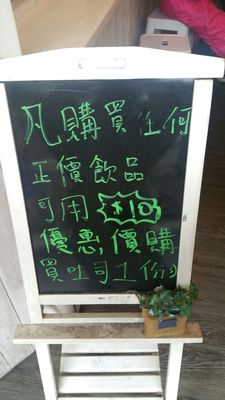 凡購買任何
正價飲品
可用 $10
優惠價購
買吐司1份